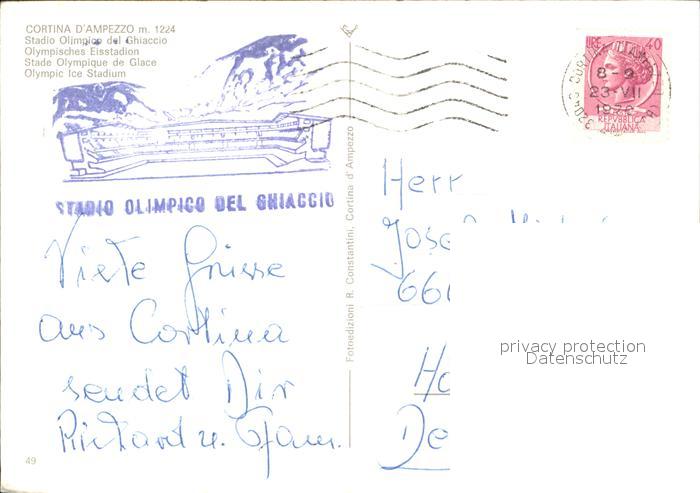 CORTINA D'AMPEZZO m. 1224
Stadio Olimpico del Ghiaccio
Olympisches Eisstadion
Stade Olympique de Glace
Olympic Ice Stadium
STADIO OLIMPICO DEL GHIACCIO
Viele Grüsse
aus Cortina
sendet Dir
Richard u. Fam.
49
Fotoedizioni R. Constantini, Cortina d'Ampezzo
LIRE 40
8-9
23-VII
REPVBBLICA
ITALIANA
Herr
Jose
66
Ho
De
privacy protection
Datenschutz